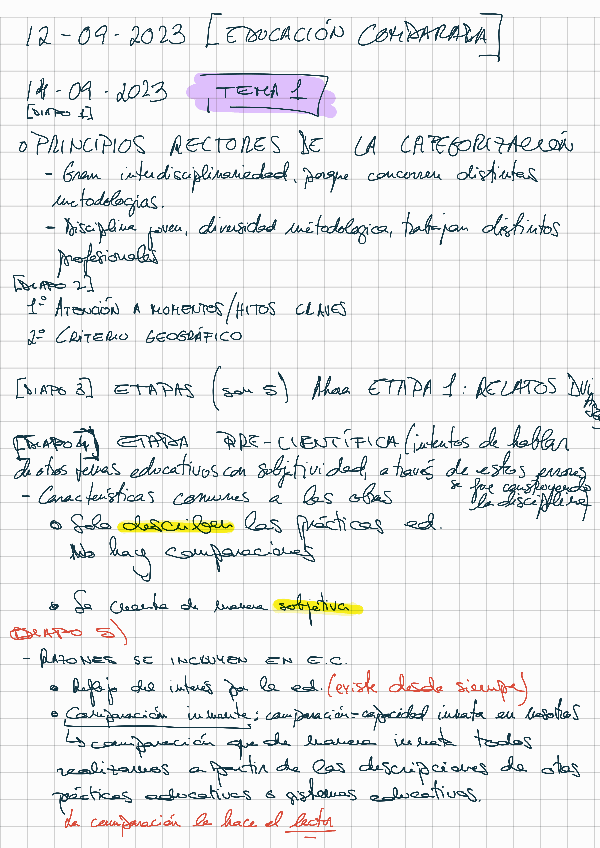 12-09-2023 [EDUCACIÓN COMPARADA]
14-09-2023 TEMA 1
[DIAPO 1]
o PRINCIPIOS RECTORES DE LA CATEGORIZACIÓN
- Gran interdisciplinariedad, porque concurren distintas
metodologías.
- Disciplina joven, diversidad metodológica, trabajan distintos
profesionales
[DIAPO 2]
1º ATENCIÓN A MOMENTOS/HITOS CLAVES
2º CRITERIO GEOGRÁFICO
[DIAPO 3] ETAPAS (son 5) Ahora ETAPA 1: RELATOS
[DIAPO 4] ETAPA PRE-CIENTÍFICA (intentos de hablar
de otros temas educativos con subjetividad, a través de estos errores
se fue construyendo
la disciplina
- Características comunes a las obras
o Solo describen las prácticas ed.
No hay comparaciones
o Se cuenta de manera subjetiva
DIAPO 5)
- RAZONES SE INCLUYEN EN E.C.
o Reflejo del interés por la ed. (existe desde siempre)
o Comparación inmante: comparación=capacidad innata en nosotros
↳ comparación que de manera innata todos
realizamos a partir de las descripciones de otas
prácticas educativas o sistemas educativos.
La comparación la hace el lector